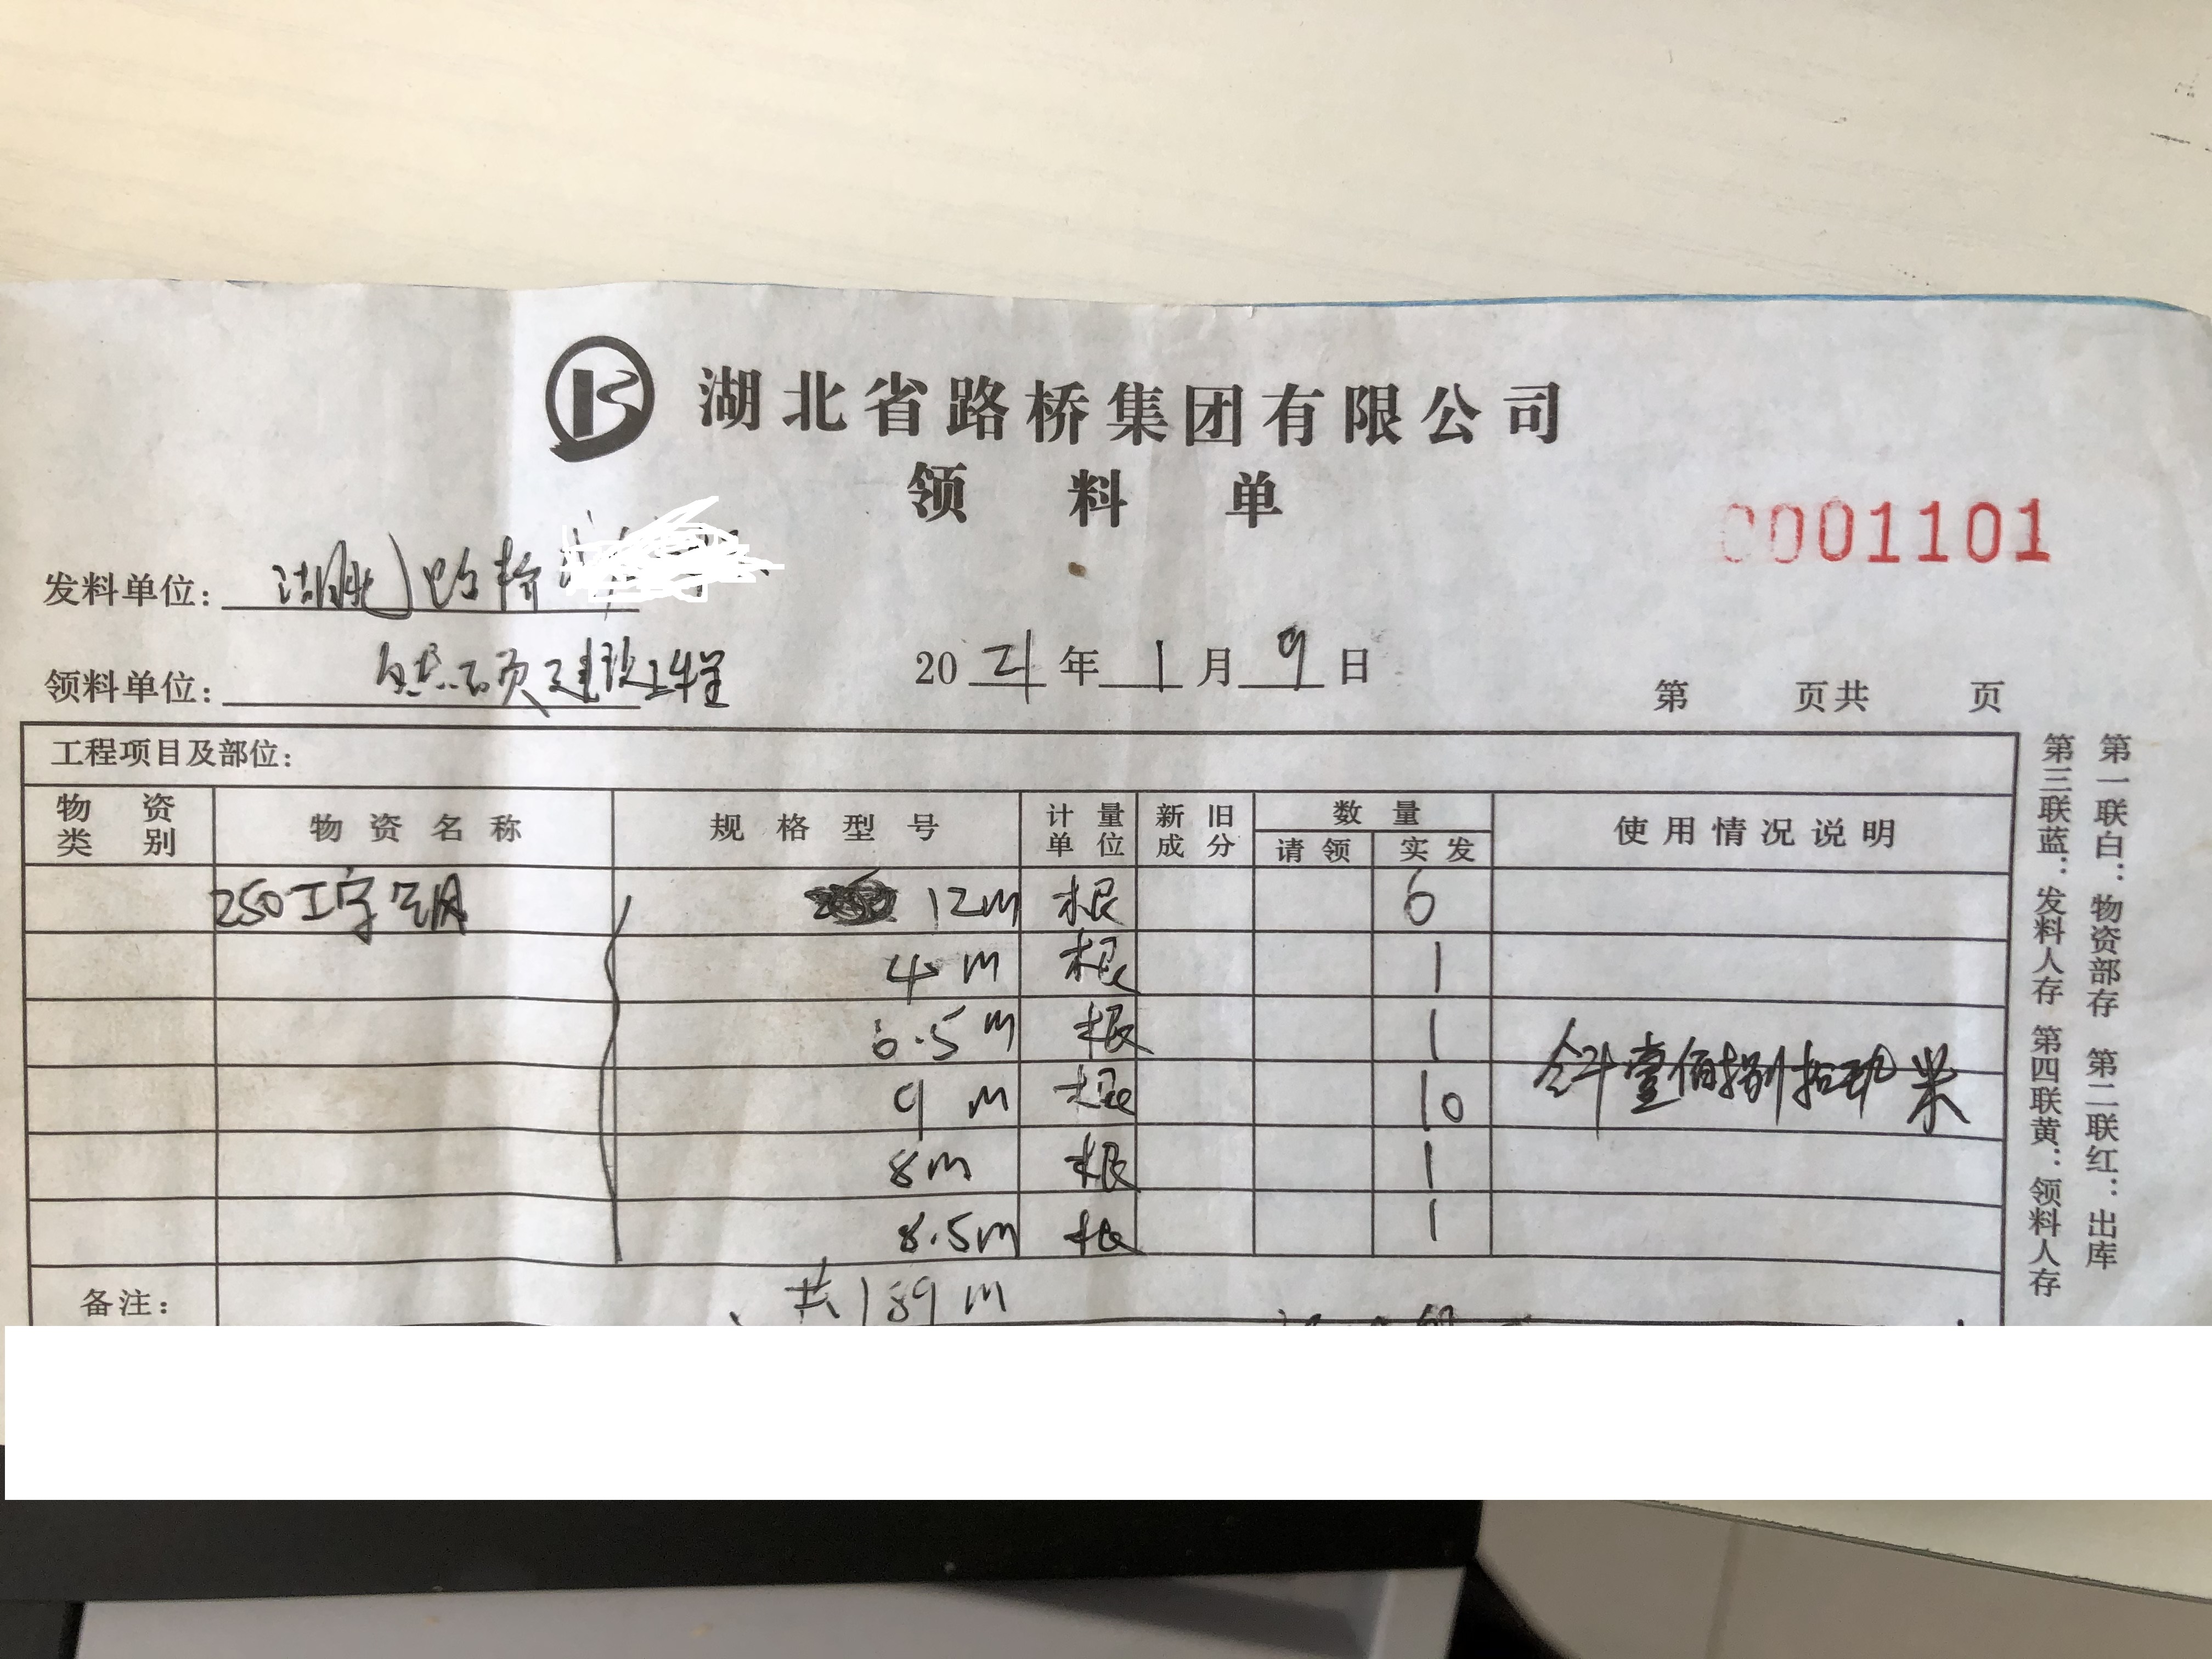 湖北省路桥集团有限公司
领料单
0001101
发料单位: 湖北路桥
领料单位: 建设工程
2021年1月9日
第 页共 页
工程项目及部位:
物资类别 物资名称 规格型号 计量单位 新旧成分 数量 请领 实发 使用情况说明
250工字钢 12m 根 6
4m 根 1
6.5m 根 1
9m 根 10
合计壹佰捌拾玖米
8m 根 1
8.5m 根 1
备注: 共189m
第一联白:物资部存 第二联红:出库
第三联蓝:发料人存 第四联黄:领料人存